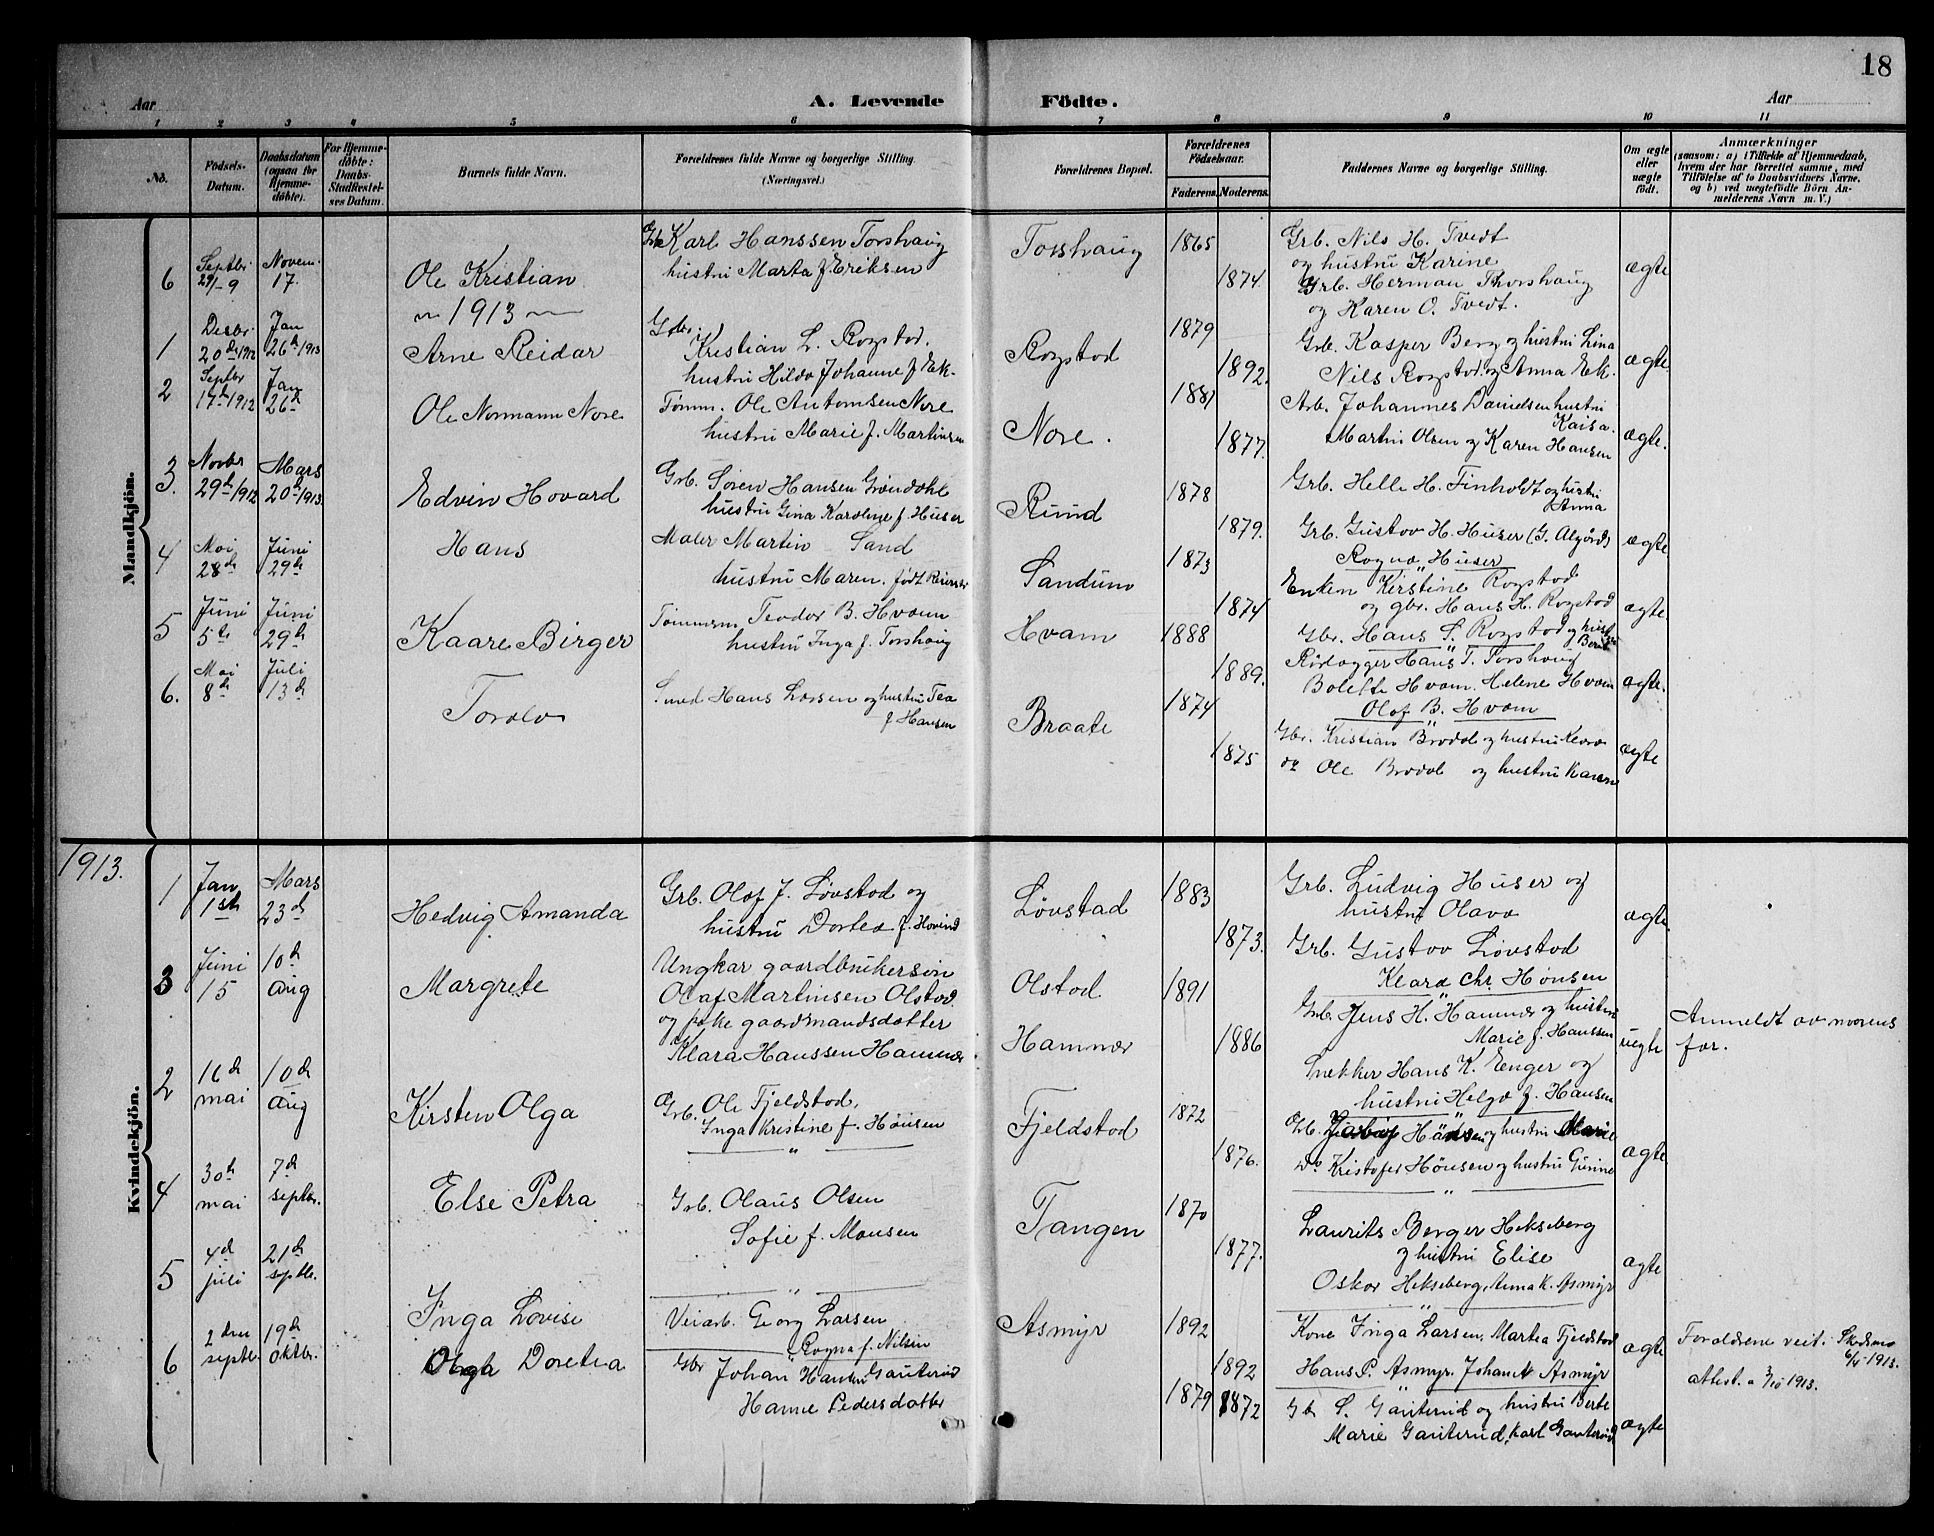 18
Aar
A. Levende Födte.
Aar
1 2 3 4 5 6 7 8 9 10 11
No.
Födsels-Datum.
Daabsdatum (ogsaa for Hjemme-döbte).
For Hjemme-döbte: Daabs-Stadfæstel-ses Datum.
Barnets fulde Navn.
Forældrenes fulde Navne og borgerlige Stilling.
(Næringsvei.)
Forældrenes Bopæl.
Forældrenes Födselsaar.
Faderens. Moderens.
Faddernes Navne og borgerlige Stilling.
Om ægte eller uægte födt.
Anmærkninger
(saasom: a) i Tilfælde af Hjemmedaab,
hvem der har forrettet samme, med
Tilföielse af to Daabsvidners Navne,
og b) ved uægtefödte Börn An-
melderens Navn m. V.)
Mandkjön.
6 Septbr. 29/-9 Novem. 17.
Ole Kristian
Karl Hanssen Torshaug
hustru Marta f. Eriksen
Torshaug 1865 1874
Grb. Nils H. Tvedt
og hustru Karine
Grb. Herman Thorshaug
og Karen O. Tvedt.
ægte
1913
1 Desbr. 20de 1912 Jan 26de 1913
Arne Reidar
Gbr. Kristian L. Rogstad.
hustru Hilda Johanne f. Ek.
Rogstad 1879 1892.
Grb. Kasper Berg og hustru Lina
Nils Rogstad og Anna Ek.
ægte
2 Septbr 17de 1912 Jan 26de
Ole Normann Nore
Tømm. Ole Antonsen Nore
hustru Marie f. Martinsen
Nore. 1881 1877.
Arb. Johannes Danielsen hustru
Kaisa.
Martin Olsen og Karen Hansen
ægte.
3. Novbr 29de 1912 Mars 20de 1913
Edvin Hovard
Grb. Søren Hansen Grøndahl
hustru Gina Karoline f. Huser
Ruud 1878 1879.
Grb. Helle H. Finholdt og hustru
Anna
Grb. Gustav H. Huser
Ragna Huser
ægte
4 Mai 28de Juni 29de
Hans
Maler Martin Sand
hustru Maren. født
Sandum 1873 1874
Enken Kirstine Rogstad
og gbr. Hans H. Rogstad
Gbr. Hans S. Rogstad og hust
ægte
5 Juni 5te Juni 29de
Kaare Birger
Tømmerm Teodor B. Hvam
hustru Inga f. Torshaug
Hvam 1888 1889.
Hans T. Torshaug
Bolette Hvam. Helene Hvam
Olof B. Hvam
ægte.
6. Mai 8de Juli 13de
Toralv
Smed Hans Larsen og hustru Tea
f Hansen
Braate 1874 1875
Gbr. Kristian Brodal og hustru Klara
og Ole Brodal og hustru Karen
ægte
1913.
Kvindekjön.
1 Jan 1ste Mars 23de
Hedvig Amanda
Grb. Olof J. Løvstad og
hustru Dortea f. Hovind
Løvstad 1883 1873.
Grb. Ludvig Huser og
hustru Olava
Grb. Gustav Løvstad
Klara Chr. Hønsen
ægte
3 Juni 15 10de aug
Margrete
Ungkar gaardbrukersøn
Olaf Martinsen Olstad.
og pike gaardmandsdatter
Klara Hanssen Hammer
Olstad. 1891
Hammer 1886
Grb. Jens H. Hammer og hustru
Marie f. Hanssen
Snekker Hans K. Enger og
hustru Helga f. Hansen
uegte
Anmeldt av morens
far.
2 16de mai 10de aug
Kirsten Olga
Grb. Ole Fjeldstad,
Inga Kristine f. Hønsen
Fjeldstad 1872 1876.
Grb. Hønsen og hustru Marie
Do Kristofer Hønsen og hustru Gunine
ægte
4 30te mai 7de septbr.
Else Petra
Grb. Olaus Olsen
Sofie f. Monsen
Tangen 1870 1877.
Laurits Berger Hekseberg
og hustru Elise
Oskar Hekseberg, Anna K. Asmyr
ægte
5 4de juli 21de septbr.
Inga Lovise
Veiarb. Georg Larsen
Ragna f. Nilsen
Asmyr 1892 1892
Kone Inga Larsen, Martea Fjeldstad
Hans P. Asmyr. Johan Asmyr
ægte
Forældrene veit. Skedsmo
6/4-1913.
attest. 3/10 1913.
6 2den septbr. 19de oktbr.
Olga Doretea
Gbr Johan Hansen Gauterud
Hanne Pedersdatter
1879 1872
Gb S. Gauterud og hustru Berte
Marie Gauterud, Karl Gauterud
ægte